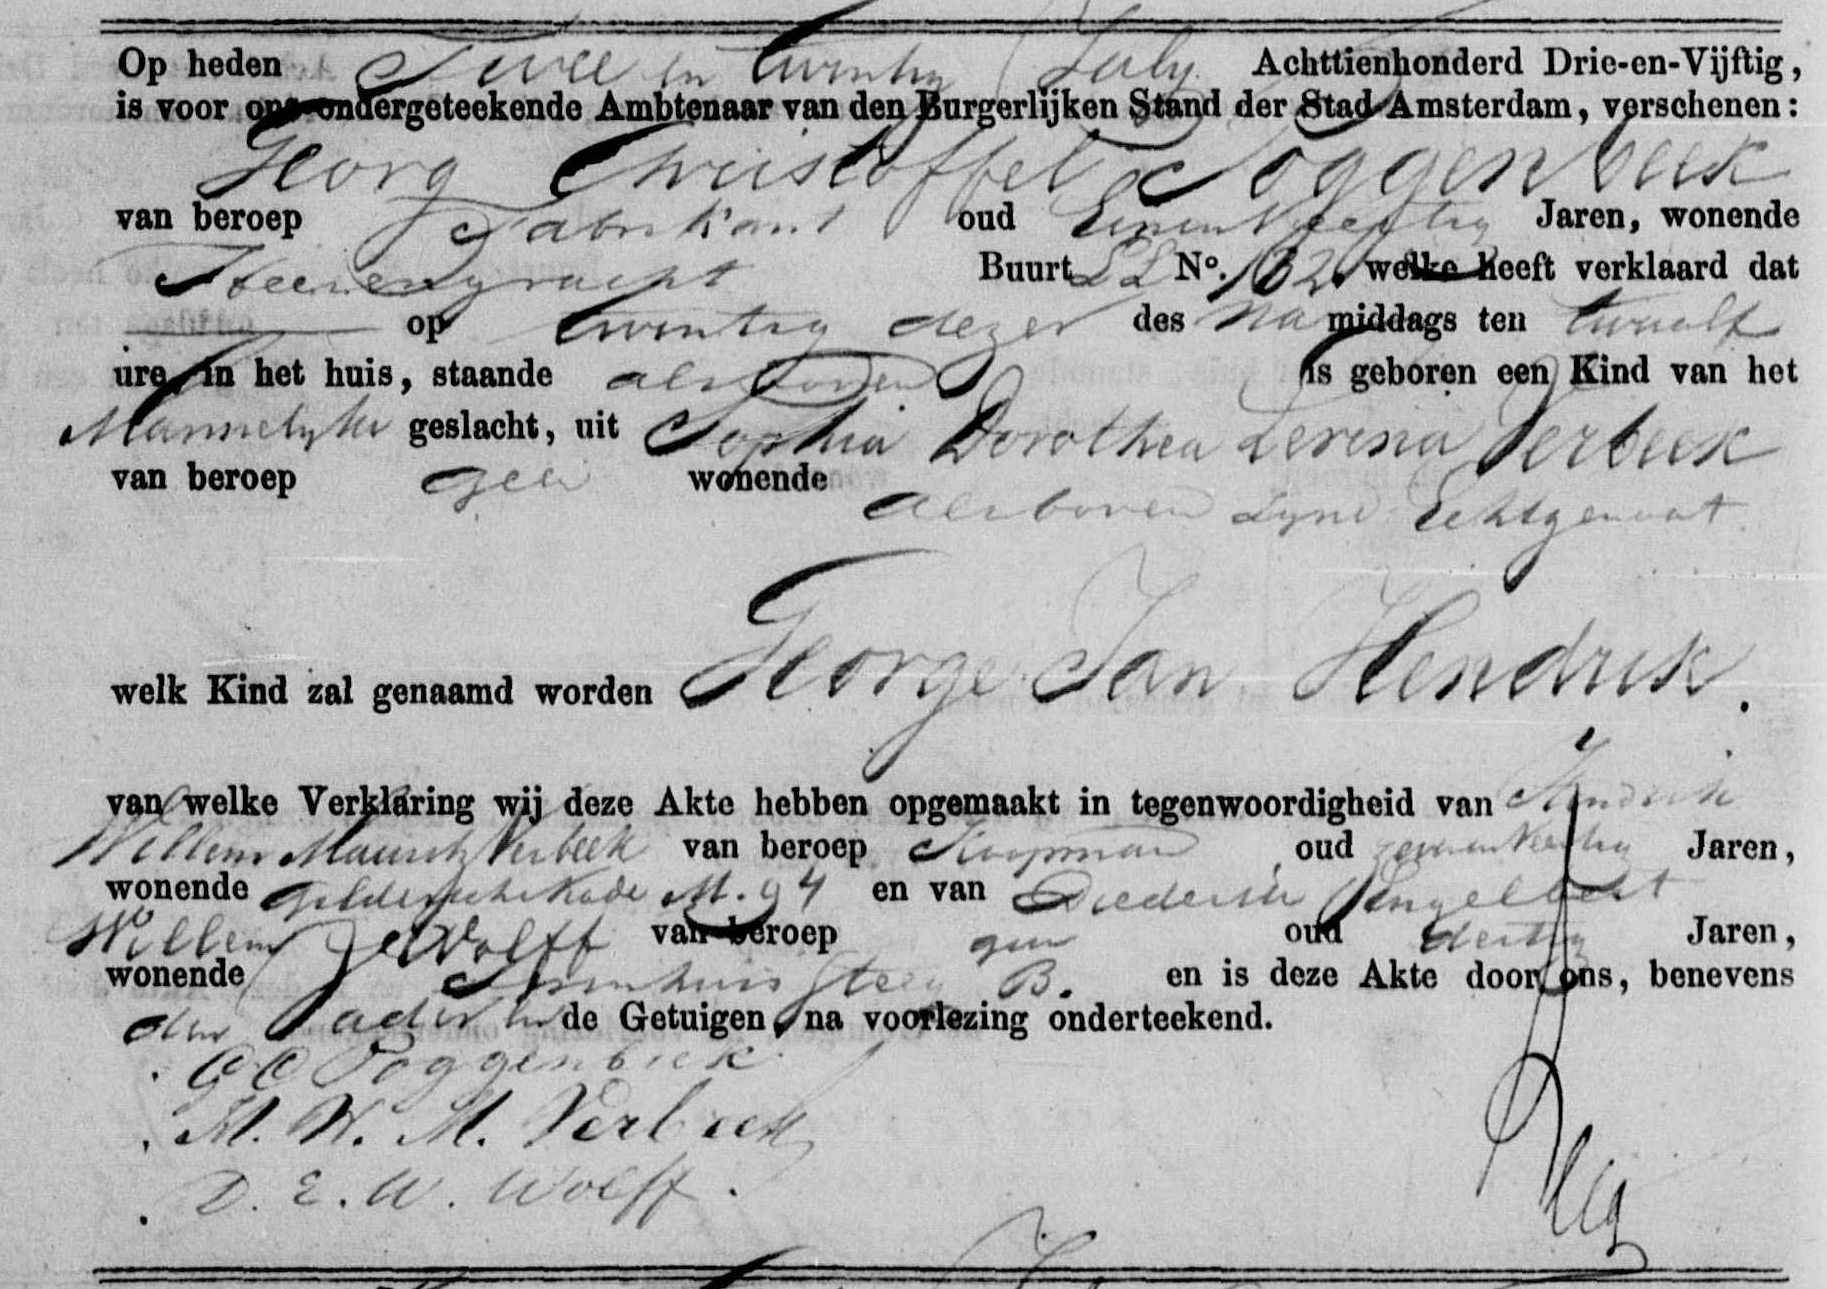 Op heden Twee en Twintig July Achttienhonderd Drie-en-Vijftig,
is voor ons ondergeteekende Ambtenaar van den Burgerlijken Stand der Stad Amsterdam, verschenen:
Georg Christoffel Poggenbeek
van beroep Fabrikant oud Eenen Veertig Jaren, wonende
Heerengracht Buurt LL No. 132. welke heeft verklaard dat
op twintig dezer des Na middags ten twaalf
ure, in het huis, staande als boven is geboren een Kind van het
Mannelyke geslacht, uit Sophia Dorothea Verbeek
van beroep geen wonende
als boven zyne Echtgenoot
George Jan Hendrik.
welk Kind zal genaamd worden
van welke Verklaring wij deze Akte hebben opgemaakt in tegenwoordigheid van Hendrik
Willem Maurits Verbeek van beroep Koopman oud Jaren,
wonende Geldersche Kade M. 94 en van Diederik Engelbert
Willem Wolff van beroep geen oud dertig Jaren,
wonende B. en is deze Akte door ons, benevens
den Vader en de Getuigen, na voorlezing onderteekend.
G C Poggenbeek
H. W. M. Verbeek
D. E. W. Wolff.